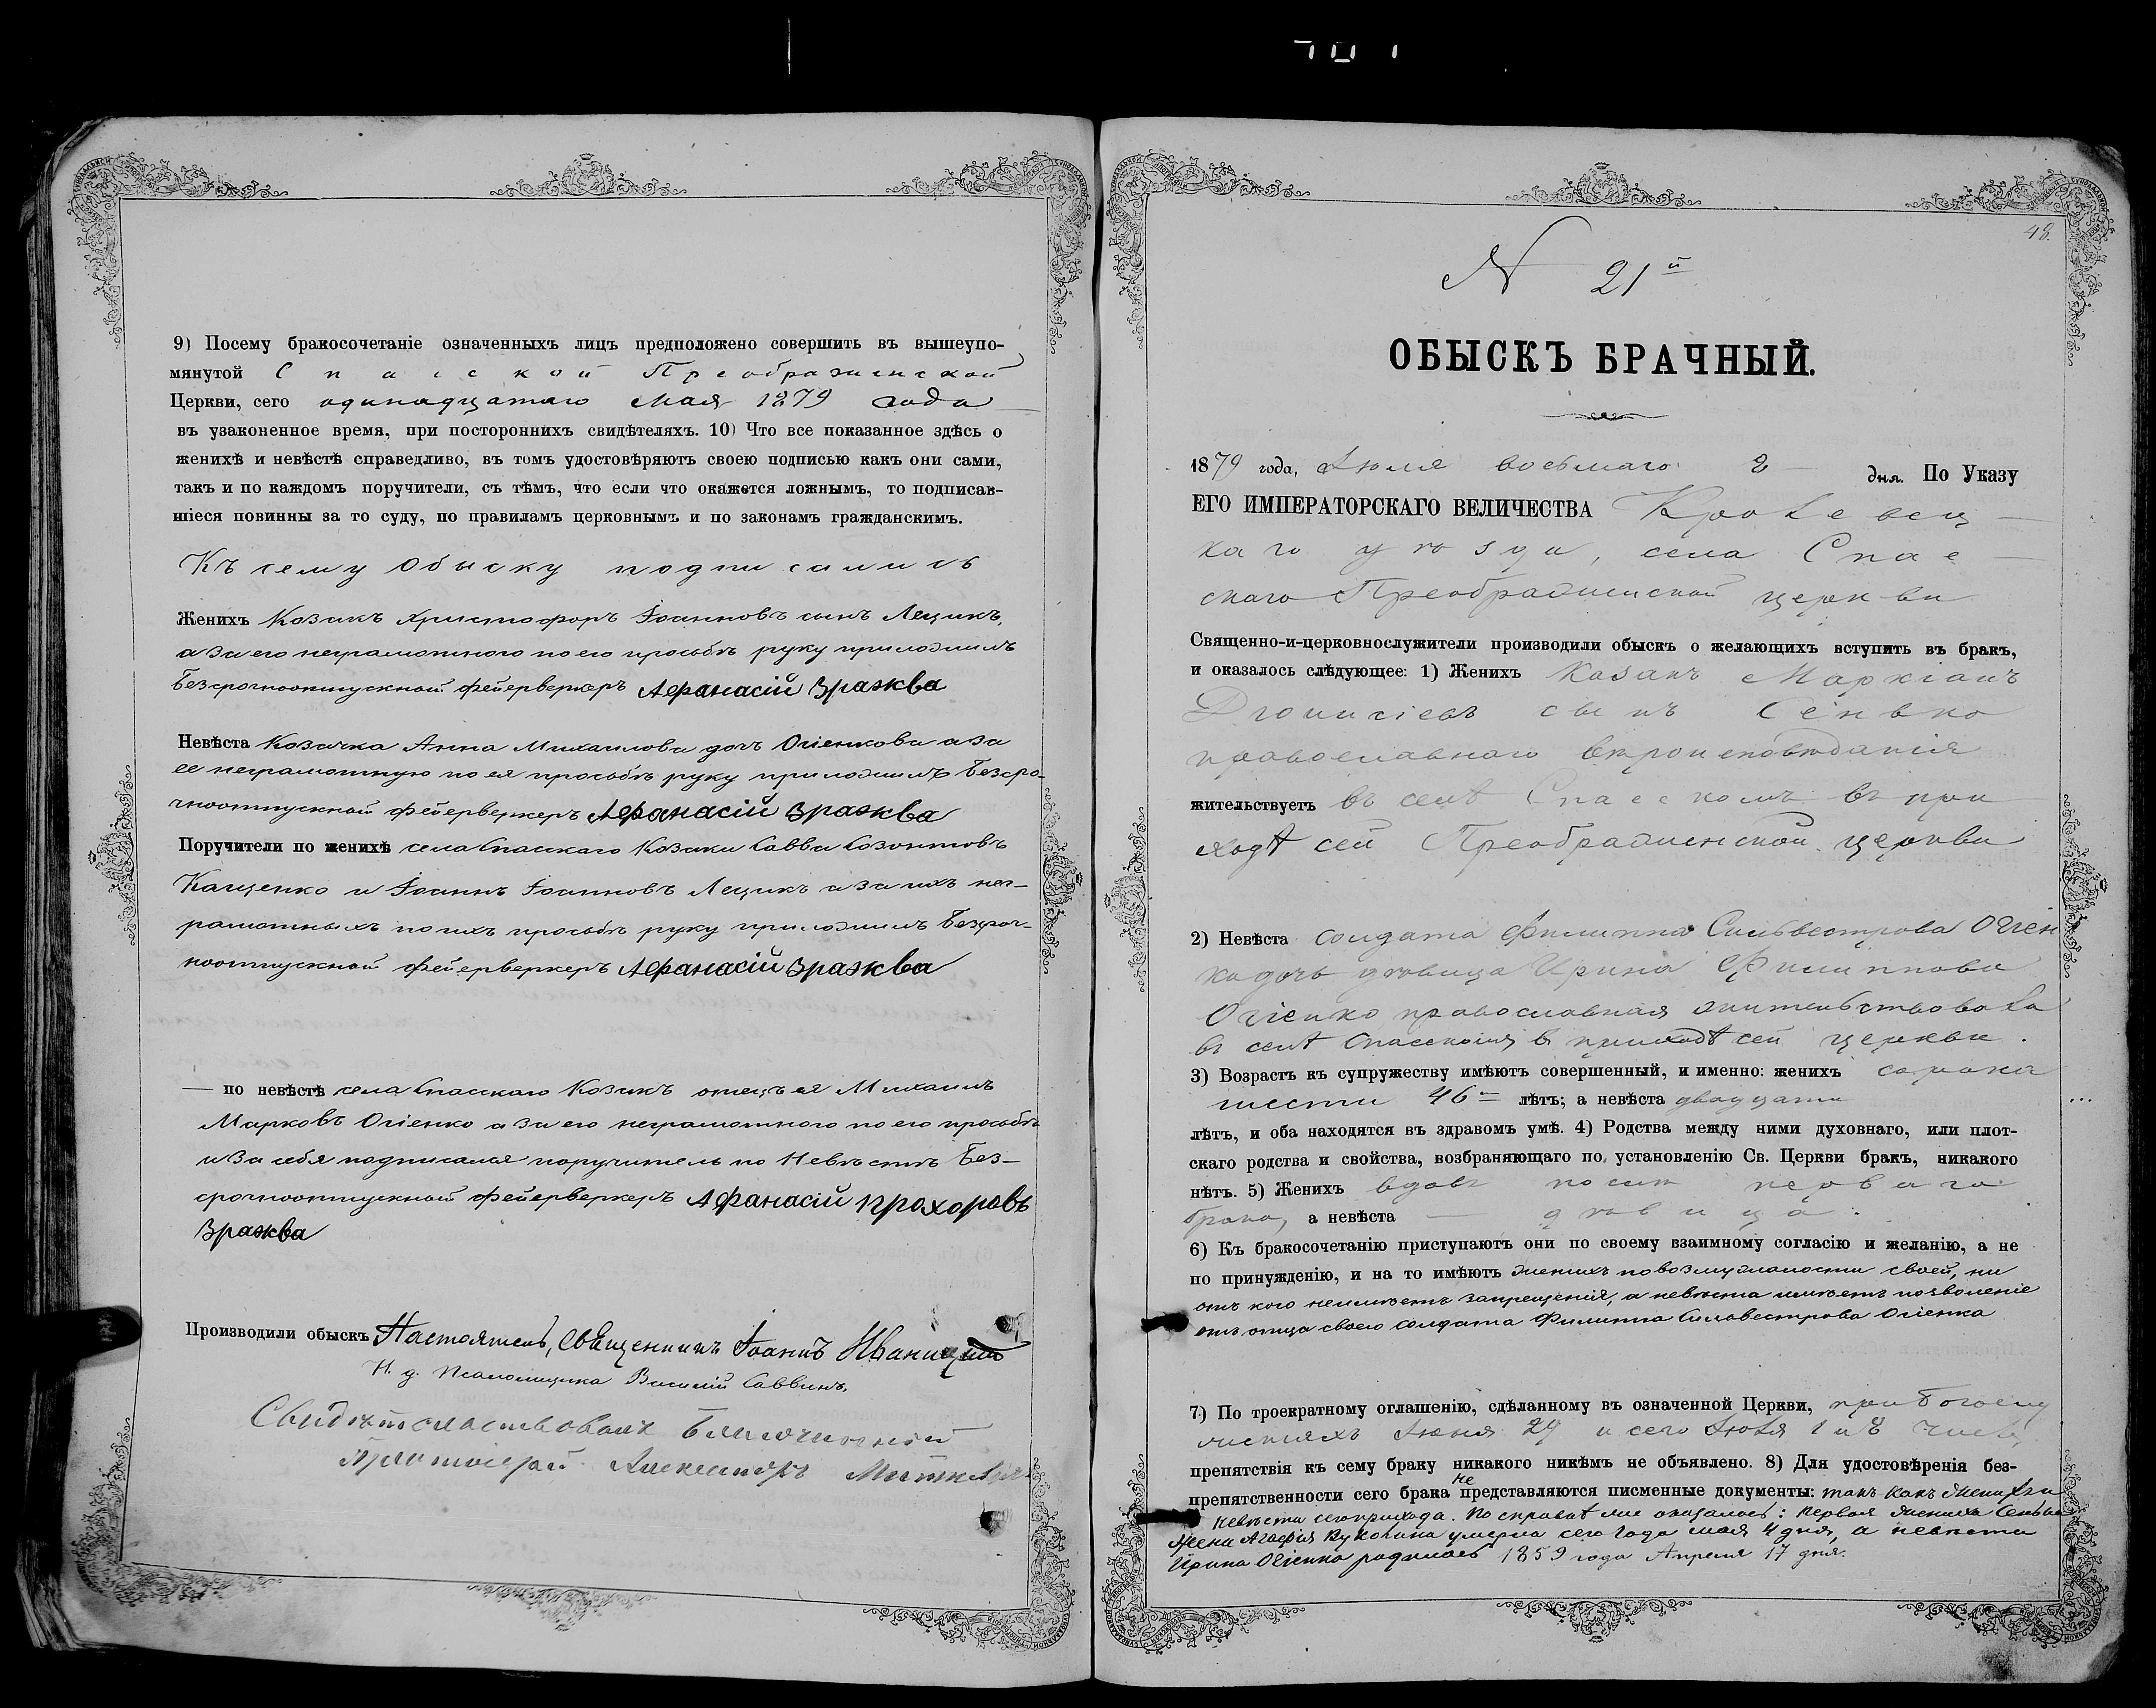 9) Посему бракосочетаніе означенныхъ лицъ предположено совершить въ вышеупо-
мянутой Спасской Преображенской
Церкви, сего одинадцатаго Мая 1879 года
въ узаконенное время, при постороннихъ свидѣтеляхъ. 10) Что все показанное здѣсь о
женихѣ и невѣстѣ справедливо, въ томъ удостовѣряютъ своею подписью какъ они сами,
такъ и по каждомъ поручители, съ тѣмъ, что если что окажется ложнымъ, то подписав-
шіеся повинны за то суду, по правиламъ церковнымъ и по законамъ гражданскимъ.
Къ сему обыску подписались
Женихъ Козакъ Христофоръ Іоанновъ сынъ Лещикъ,
а за его неграмотного по его просьбѣ руку приложилъ
Безсрочноотпускной фейерверкеръ Афанасій Зражва
Невѣста Козачка Анна Михаилова дочь Огіенкова а за
ее неграмотную по ея просьбѣ руку приложилъ Безсро-
чноотпускной фейерверкеръ Афанасій Зражва
Поручители по женихѣ села Спасскаго Козаки Савва Созонтовъ
Кащенко и Іоаннъ Іоанновъ Лещикъ а за ихъ нег-
рамотныхъ по ихъ просьбѣ руку приложилъ Безсроч-
ноотпускной фейерверкеръ Афанасій Зражва
— по невѣстѣ села Спасскаго Козакъ отецъ ея Михаилъ
Марковъ Огіенко а за его неграмотного по его просьбѣ
и за себя подписался поручитель по Невѣстѣ Без-
срочноотпускной фейерверкеръ Афанасій Прохоровъ
Зражва
Производили обыскъ Настоятель, Священникъ Іоаннъ Иваницкій
И. д. Псаломщика Василій Саввинъ,
Свидѣтельствовалъ Благочинный
Протоіерей Александръ
48.
N 21й
ОБЫСКЪ БРАЧНЫЙ.
1879 года, Іюля восьмаго 8 дня. По Указу
ЕГО ИМПЕРАТОРСКАГО ВЕЛИЧЕСТВА Кролевец-
каго уѣзда, села Спас-
скаго Преображенской церкви
Священно-и-церковнослужители производили обыскъ о желающихъ вступить въ бракъ,
и оказалось слѣдующее: 1) Женихъ Казакъ Маркіанъ
Діонисіевъ сынъ Сенько
православнаго вѣроисповѣданія
жительствуетъ въ селѣ Спасскомъ въ при
ходѣ сей Преображенской церкви
2) Невѣста солдата Филиппа Сильвестрова Огіен
ка дочь дѣвица Ирина Филиппова
Огіенко православная жительствовала
въ селѣ Спасскомъ въ приходѣ сей церкви.
3) Возрастъ къ супружеству имѣютъ совершенный, и именно: женихъ сорока
шести 46 лѣтъ; а невѣста двадцати
лѣтъ, и оба находятся въ здравомъ умѣ. 4) Родства между ними духовнаго, или плот-
скаго родства и свойства, возбраняющаго по установленію Св. Церкви бракъ, никакого
нѣтъ. 5) Женихъ вдовъ послѣ перваго
брака, а невѣста — дѣвица.
6) Къ бракосочетанію приступаютъ они по своему взаимному согласію и желанію, а не
по принужденію, и на то имѣютъ женихъ по возмужалости своей, ни
отъ кого неимѣетъ запрещенія, а невѣста имѣетъ позволеніе
отъ отца своего солдата Филиппа Сильвестрова Огіенка
7) По троекратному оглашенію, сдѣланному въ означенной Церкви, при Богослу
женіяхъ Іюня 29 и сего Іюля 1 и 8 чиселъ
препятствія къ сему браку никакого никѣмъ не объявлено. 8) Для удостовѣренія без-
препятственности сего брака не представляются писменные документы: такъ какъ женихъ и
невѣста сего прихода. По справкѣ же оказалось: первая жениха Сенька
жена Агафія Куколина умерла сего года мая 4 дня, а невѣста
Ирина Огіенко родилась 1859 года Апреля 17 дня.